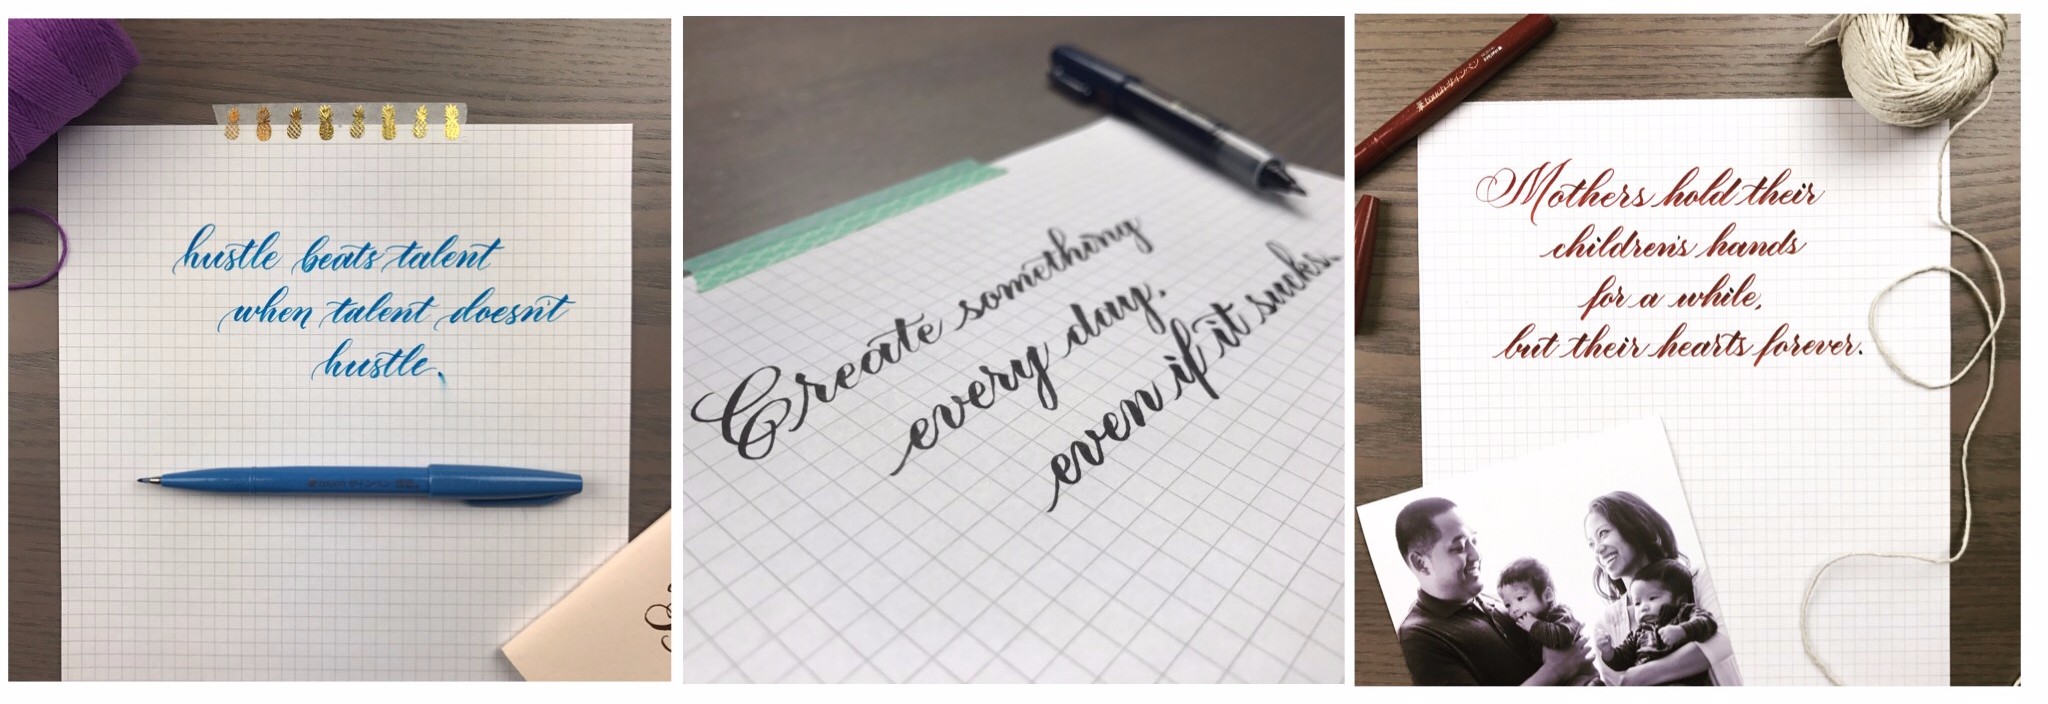 hustle beats talent
when talent doesn't
hustle.
touch サインペン
Create something
every day.
even if it sucks.
touch サインペン
Mothers hold their
children's hands
for a while,
but their hearts forever.